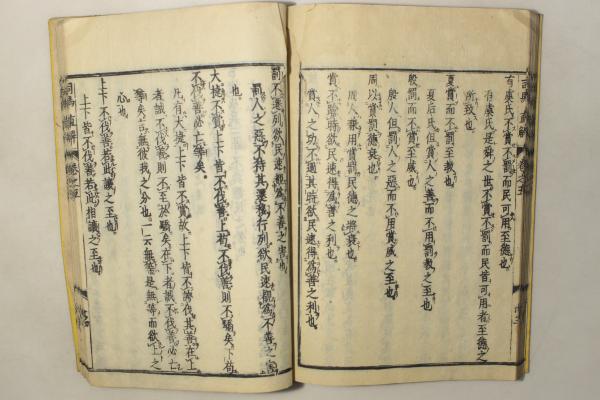 有虞氏不賞不罰而民可用至德也
有虞氏是舜之世不賞不罰而民皆可用者至德之
所致也
夏賞而不罰至教也
夏后氏但賞人之善而不用罰教之至也
殷罰而不賞至威也
殷人但罰人之惡而不用賞威之至也
周以賞罰德衰也
周人兼用賞罰民德之衰也
賞不踰時欲民速得爲善之利也
賞人之功不過其時欲民速得爲善之利也
罰不遷列欲民速覩爲不善之害也
罰人之惡不待其遷移行列欲民速覩爲不善之害
也
大捷不賞上下皆不伐善上苟不伐善則不驕矣下苟
不伐善必亡等矣
凡有大捷上下皆不賞故上下皆不誇伐其善在上
者誠不伐善則不至於驕矣在下者誠不伐善必亡
等矣言無彼我之分也一云無等是無等而欲上之
心也
上下不伐善若此讓之至也
上下皆不伐善若此相讓之至也